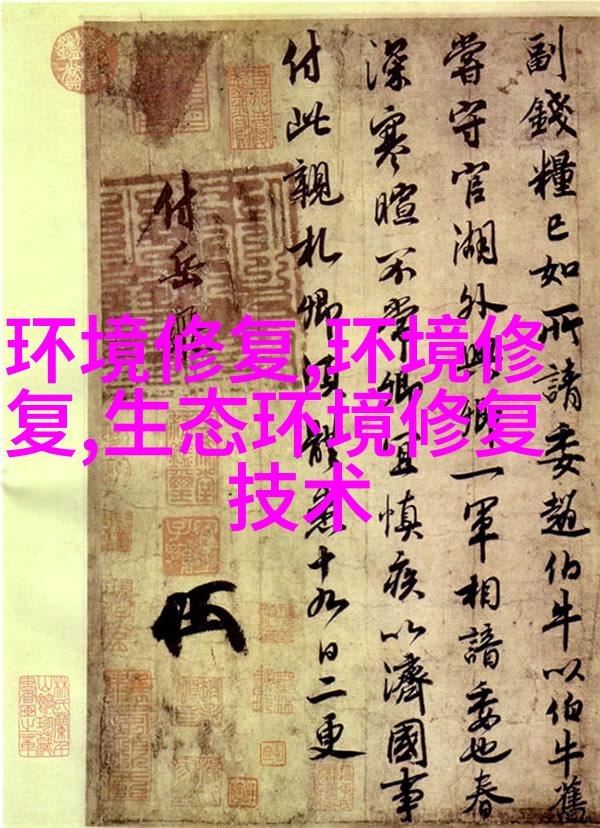 环境修复,环境修
复,生态环境修复
技术
副錢糧已如所請委趙伯牛以伯牛舊
嘗守官湖外與卿一軍相諳委也春
深寒暄不常卿宜慎疾以濟國事
付此親札卿須體悉十九日二更
付岳飛